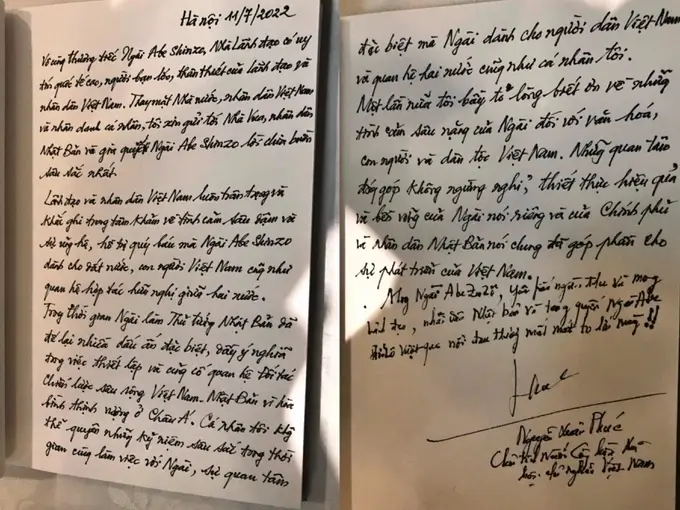 Hà Nội 11/7/2022
Vô cùng thương tiếc Ngài Abe Shinzo, Nhà Lãnh đạo có uy
tín quốc tế cao, người bạn lớn, thân thiết của Lãnh đạo và
nhân dân Việt Nam. Thay mặt Nhà nước, nhân dân Việt Nam
và nhân danh cá nhân, tôi xin gửi tới Nhà Vua, nhân dân
Nhật Bản và gia quyến Ngài Abe Shinzo lời chia buồn
sâu sắc nhất.
Lãnh đạo và nhân dân Việt Nam luôn trân trọng và
khắc ghi trong tâm khảm về tình cảm sâu đậm và
sự ủng hộ, hỗ trợ quý báu mà Ngài Abe Shinzo
dành cho đất nước, con người Việt Nam cũng như
quan hệ hợp tác hữu nghị giữa hai nước.
Trong thời gian Ngài làm Thủ tướng Nhật Bản đã
để lại nhiều dấu ấn đặc biệt, đầy ý nghĩa
trong việc thiết lập và củng cố quan hệ Đối tác
Chiến lược sâu rộng Việt Nam. Nhật Bản vì hòa
bình thịnh vượng ở Châu Á. Cá nhân tôi không
thể quên những kỷ niệm sâu sắc trong thời
gian cùng làm việc với Ngài, sự quan tâm
đặc biệt mà Ngài dành cho người dân Việt Nam
và quan hệ hai nước cũng như cá nhân tôi.
Một lần nữa tôi bày tỏ lòng biết ơn về những
tình cảm sâu nặng của Ngài đối với văn hóa,
con người và dân tộc Việt Nam. Những quan tâm
đóng góp không ngừng nghỉ, thiết thực hiệu quả
và bền vững của Ngài nói riêng và của Chính phủ
và Nhân dân Nhật Bản nói chung đã góp phần cho
sự phát triển của Việt Nam.
Mong Ngài Abe yên và mong
Lãnh đạo, nhân dân Nhật Bản và tang quyến Ngài Abe
vượt qua nỗi đau thương mất mát to lớn này!!
Nguyễn Xuân Phúc
Chủ tịch Nước Cộng hòa Xã
hội chủ nghĩa Việt Nam